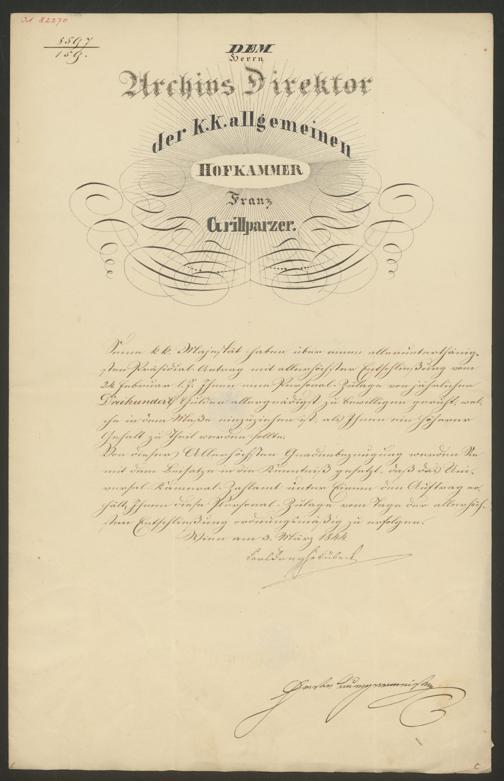 IN 82270
5597
159.
DEM
Herrn
Archivs Direktor
der k.k. allgemeinen
HOFKAMMER
Franz
Grillparzer.
Seine k.k. Majestät haben über einen allerunterthänig-
sten Präsidial-Antrag mit allerhöchster Entschließung vom
24 Februar l.J. Ihnen eine Personal-Zulage von jährlichen
Dreihundert Gulden allergnädigst zu bewilligen geruht, wel-
che in dem Maße einzuziehen ist, als Ihnen ein höherer
Gehalt zu Theil werden sollte.
Von dieser Allerhöchsten Gnadenbezeugung werden Sie
mit dem Beisatze in die Kenntniß gesetzt, daß das Uni-
versal-Kameral-Zahlamt unter Einem den Auftrag er-
hält, Ihnen diese Personal-Zulage vom Tage der allerhöch-
sten Entschließung ordnungsmäßig zu erfolgen.
Wien am 3. März 1844